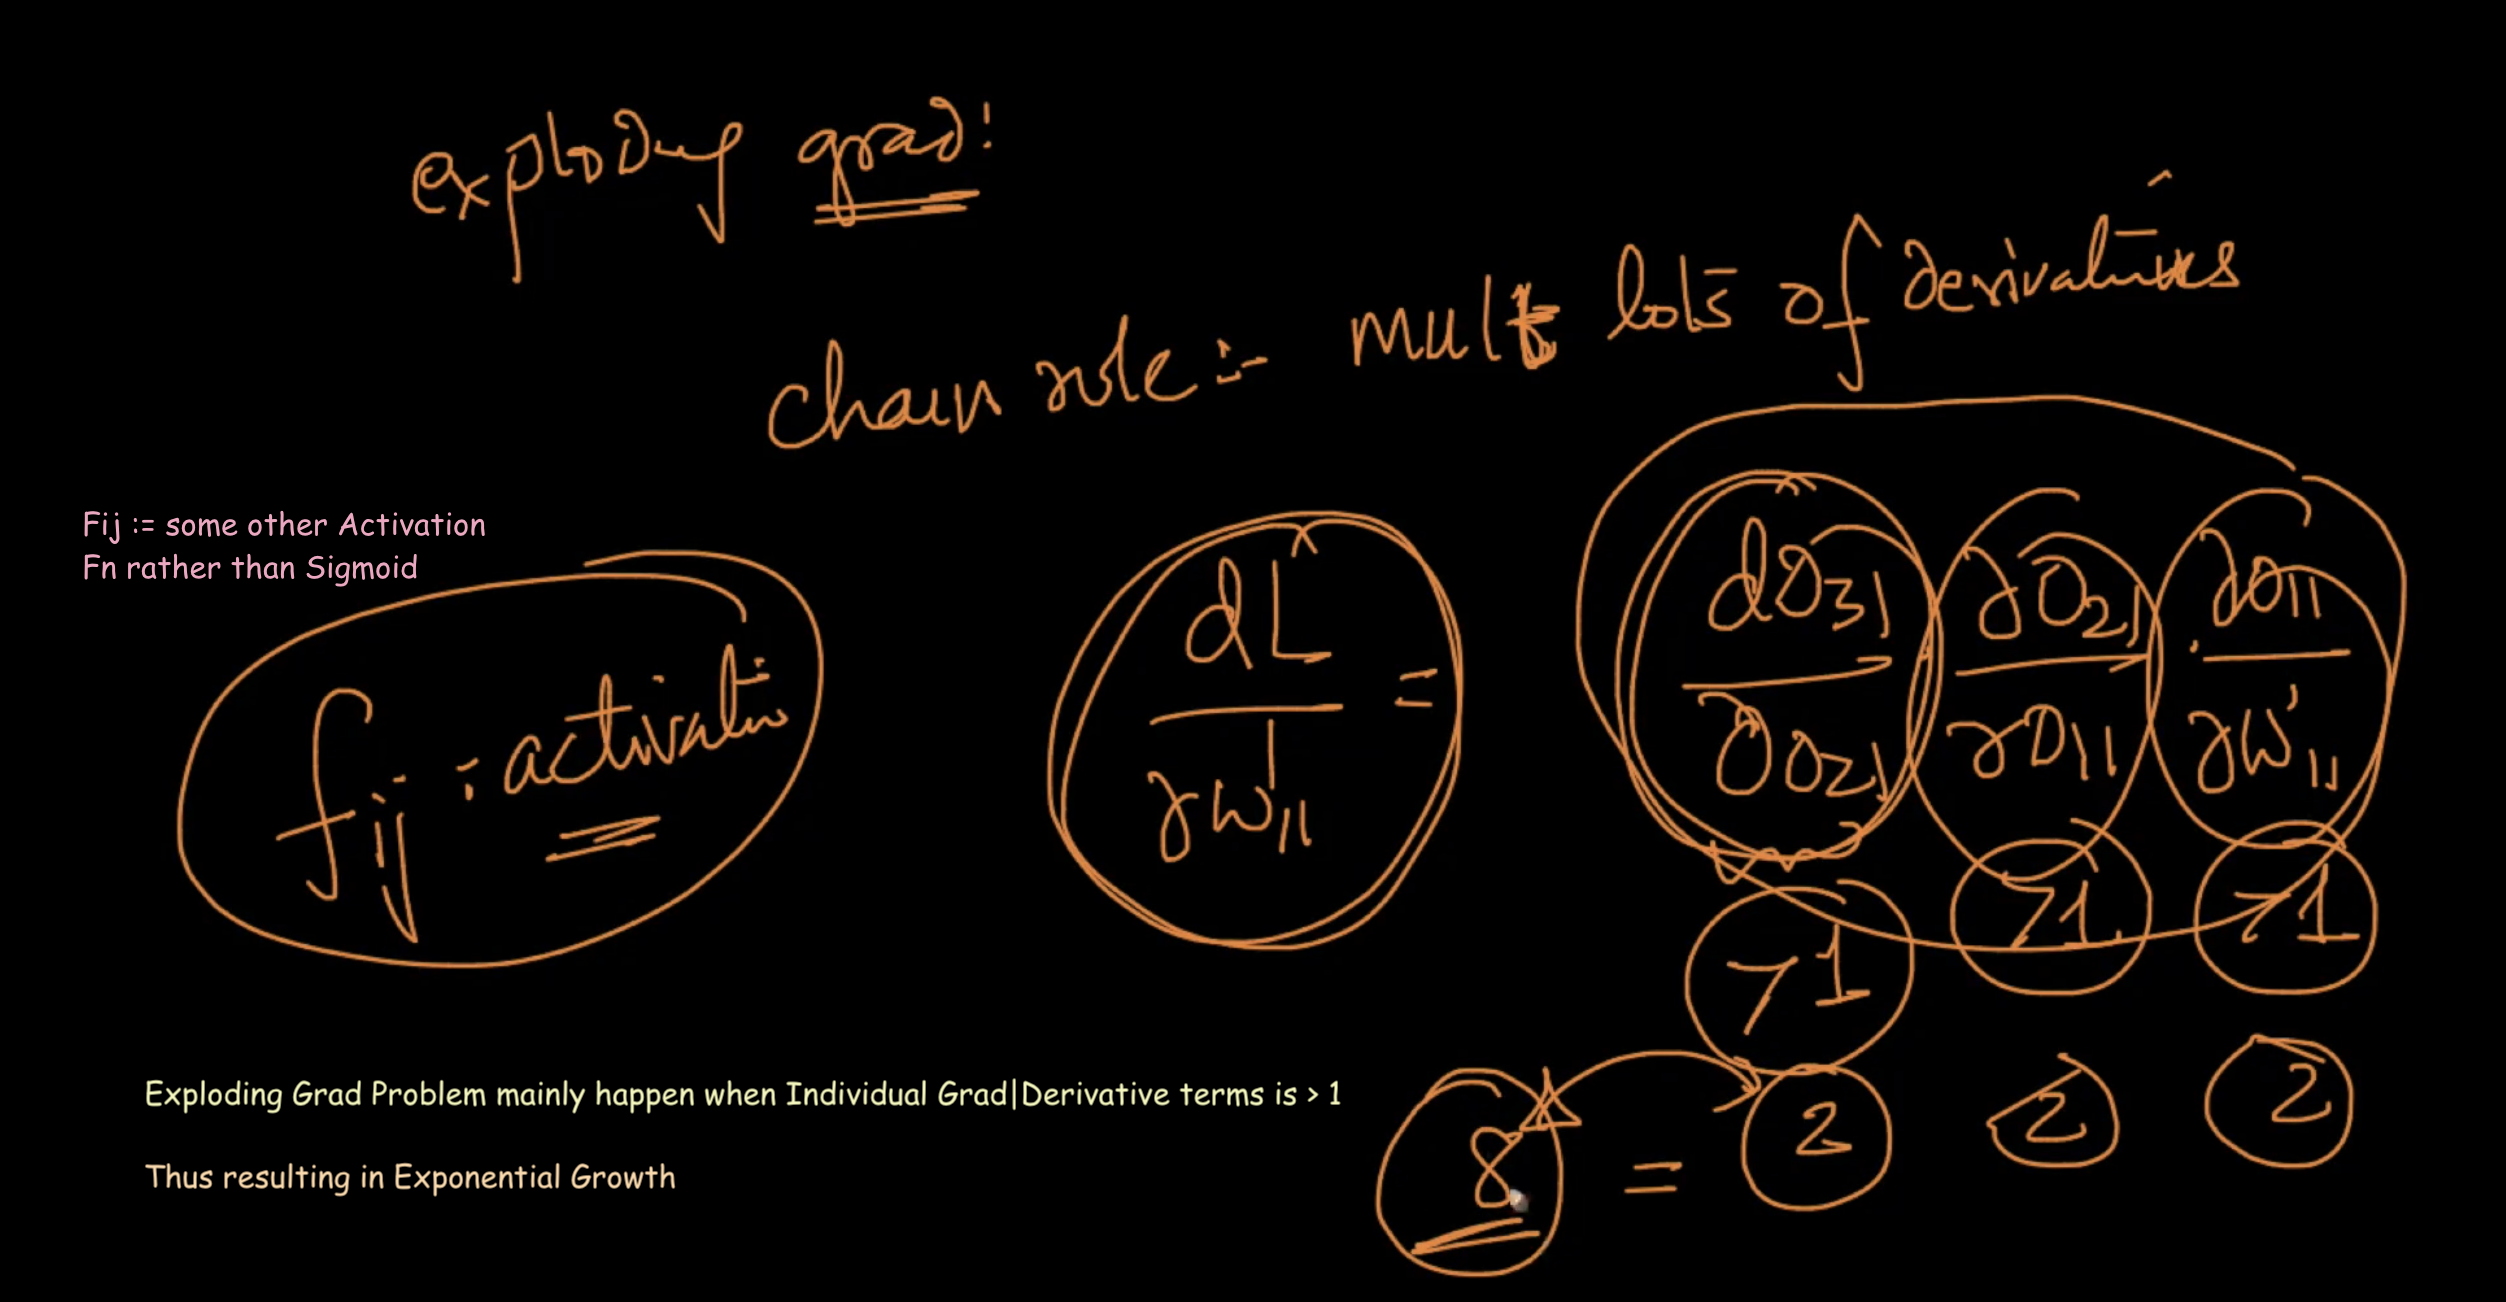 exploding grad:
chain rule :- mult lots of derivatives
Fij := some other Activation
Fn rather than Sigmoid
fij : activation
∂L/∂w¹11 = ∂O31/∂O21 ∂O21/∂O11 · ∂O11/∂w'11
>1 >1 >1
Exploding Grad Problem mainly happen when Individual Grad|Derivative terms is > 1
8 = 2 2 2
Thus resulting in Exponential Growth